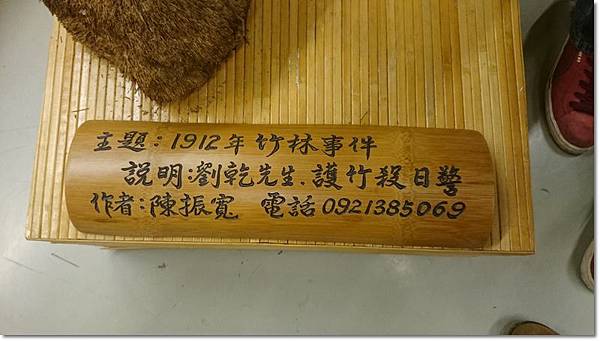 主題:1912年竹林事件
說明:劉乾先生.護竹殺日警
作者:陳振寬 電話0921385069